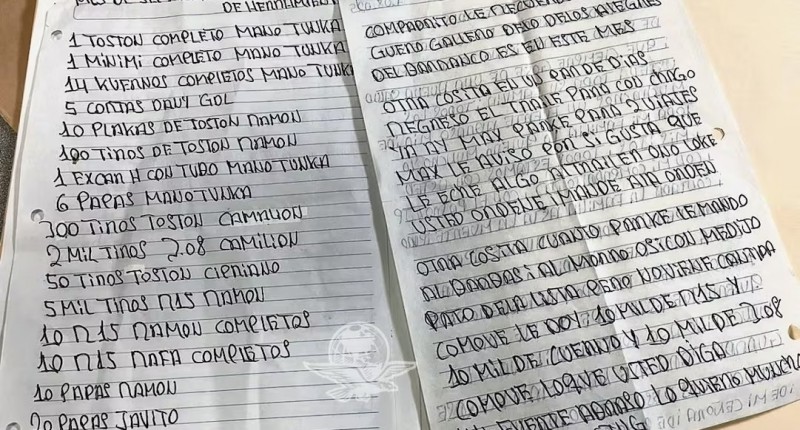 DE HERRAMIENTA
1 TOSTON COMPLETO MANO TUNKA
1 MINIMI COMPLETO MANO TUNKA
14 KUERNOS COMPLETOS MANO TUNKA
5 CORTAS DAVY GOL
10 PLAKAS DE TOSTON RAMON
100 TIROS DE TOSTON RAMON
1 EXCAR H CON TUBO MANO TUNKA
6 PAPAS MANO TUNKA
300 TIROS TOSTON CAMALION
2 MIL TIROS 2.08 CAMILION
50 TIROS TOSTON CIPRIANO
5 MIL TIROS R15 RAMON
10 R15 RAMON COMPLETOS
10 R15 RAFA COMPLETOS
10 PAPAS RAMON
20 PAPAS JAVITO
COMPADRITO LE RECUERDO
GUERO GALLERO DELO DELOS ALEGRES
DEL BARRANCO ES EU ESTE MES
OTRA COSITA EN UU PAR DE DIAS
REGRESO EL TRAILE PARA CON CHAGO
YA AY MAX PARKE PARA 2 VIAJES
MAX LE AVISO POR SI GUSTA QUE
LE ECHE ALGO AL TRAILER ONO LOKE
USTED ORDENE I MANDE ALA ORDEN
OTRA COSITA CUANTO PARKE LE MANDO
AL BARBAS I AL MORRO OSICON MEDIJO
PATO DELA LISTA PERO NO VIENE CANTIDA
COMOVE LE DOY 10 MIL DE R15 Y
10 MIL DE CUERNO Y 10 MIL DE 308
COMOVE LO QUE USTED DIGA
FUERTE ABRASO LO QUERO MUCHO